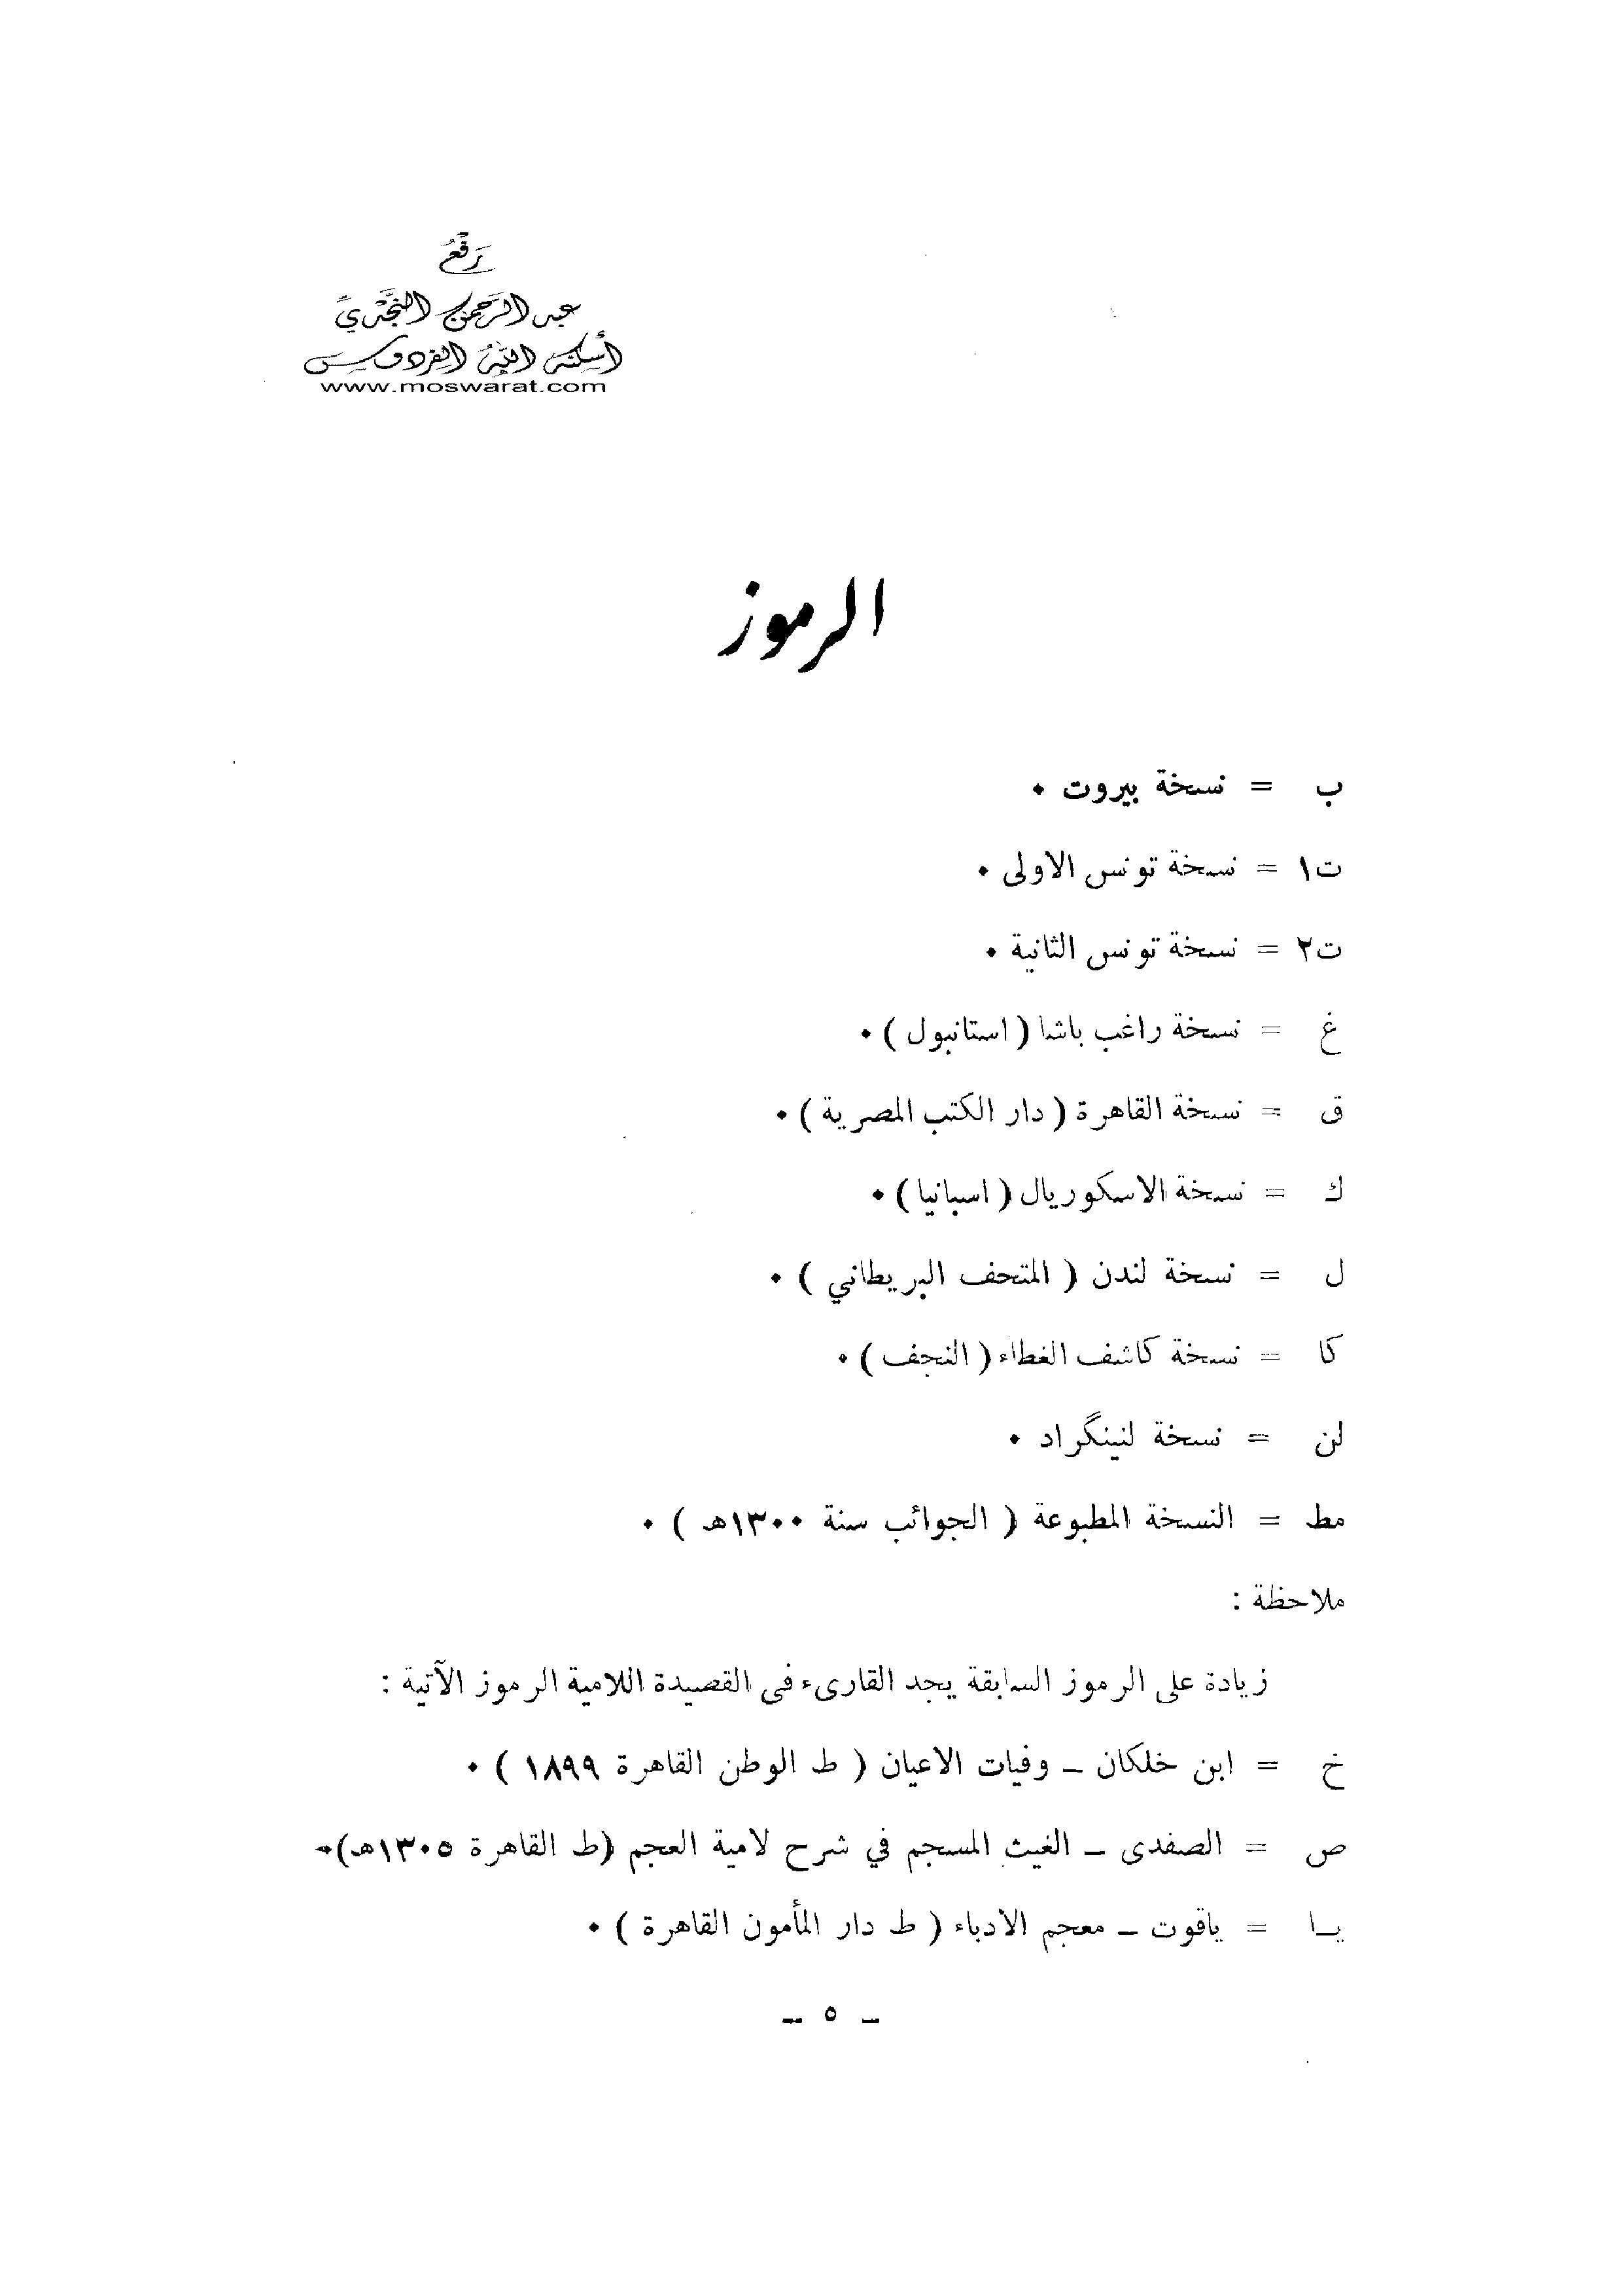 رَفْعُ
عبد الرَّحمن النَّجْدِيِّ
أَسْكَنَهُ اللَّهُ الفِرْدَوْسَ
www.moswarat.com
الرموز
ب = نسخة بيروت ٠
ت١ = نسخة تونس الاولى ٠
ت٢ = نسخة تونس الثانية ٠
غ = نسخة راغب باشا ( استانبول ) ٠
ق = نسخة القاهرة ( دار الكتب المصرية ) ٠
ك = نسخة الاسكوريال ( اسبانيا ) ٠
ل = نسخة لندن ( المتحف البريطاني ) ٠
كا = نسخة كاشف الغطاء ( النجف ) ٠
لن = نسخة لنينگراد ٠
مط = النسخة المطبوعة ( الجوائب سنة ١٣٠٠هـ ) ٠
ملاحظة :
زيادة على الرموز السابقة يجد القارىء فى القصيدة اللامية الرموز الآتية :
خ = ابن خلكان ــ وفيات الاعيان ( ط الوطن القاهرة ١٨٩٩ ) ٠
ص = الصفدى ــ الغيث المسجم في شرح لامية العجم (ط القاهرة ١٣٠٥هـ)٠
يـا = ياقوت ــ معجم الادباء ( ط دار المأمون القاهرة ) ٠
ــ ٥ ــ